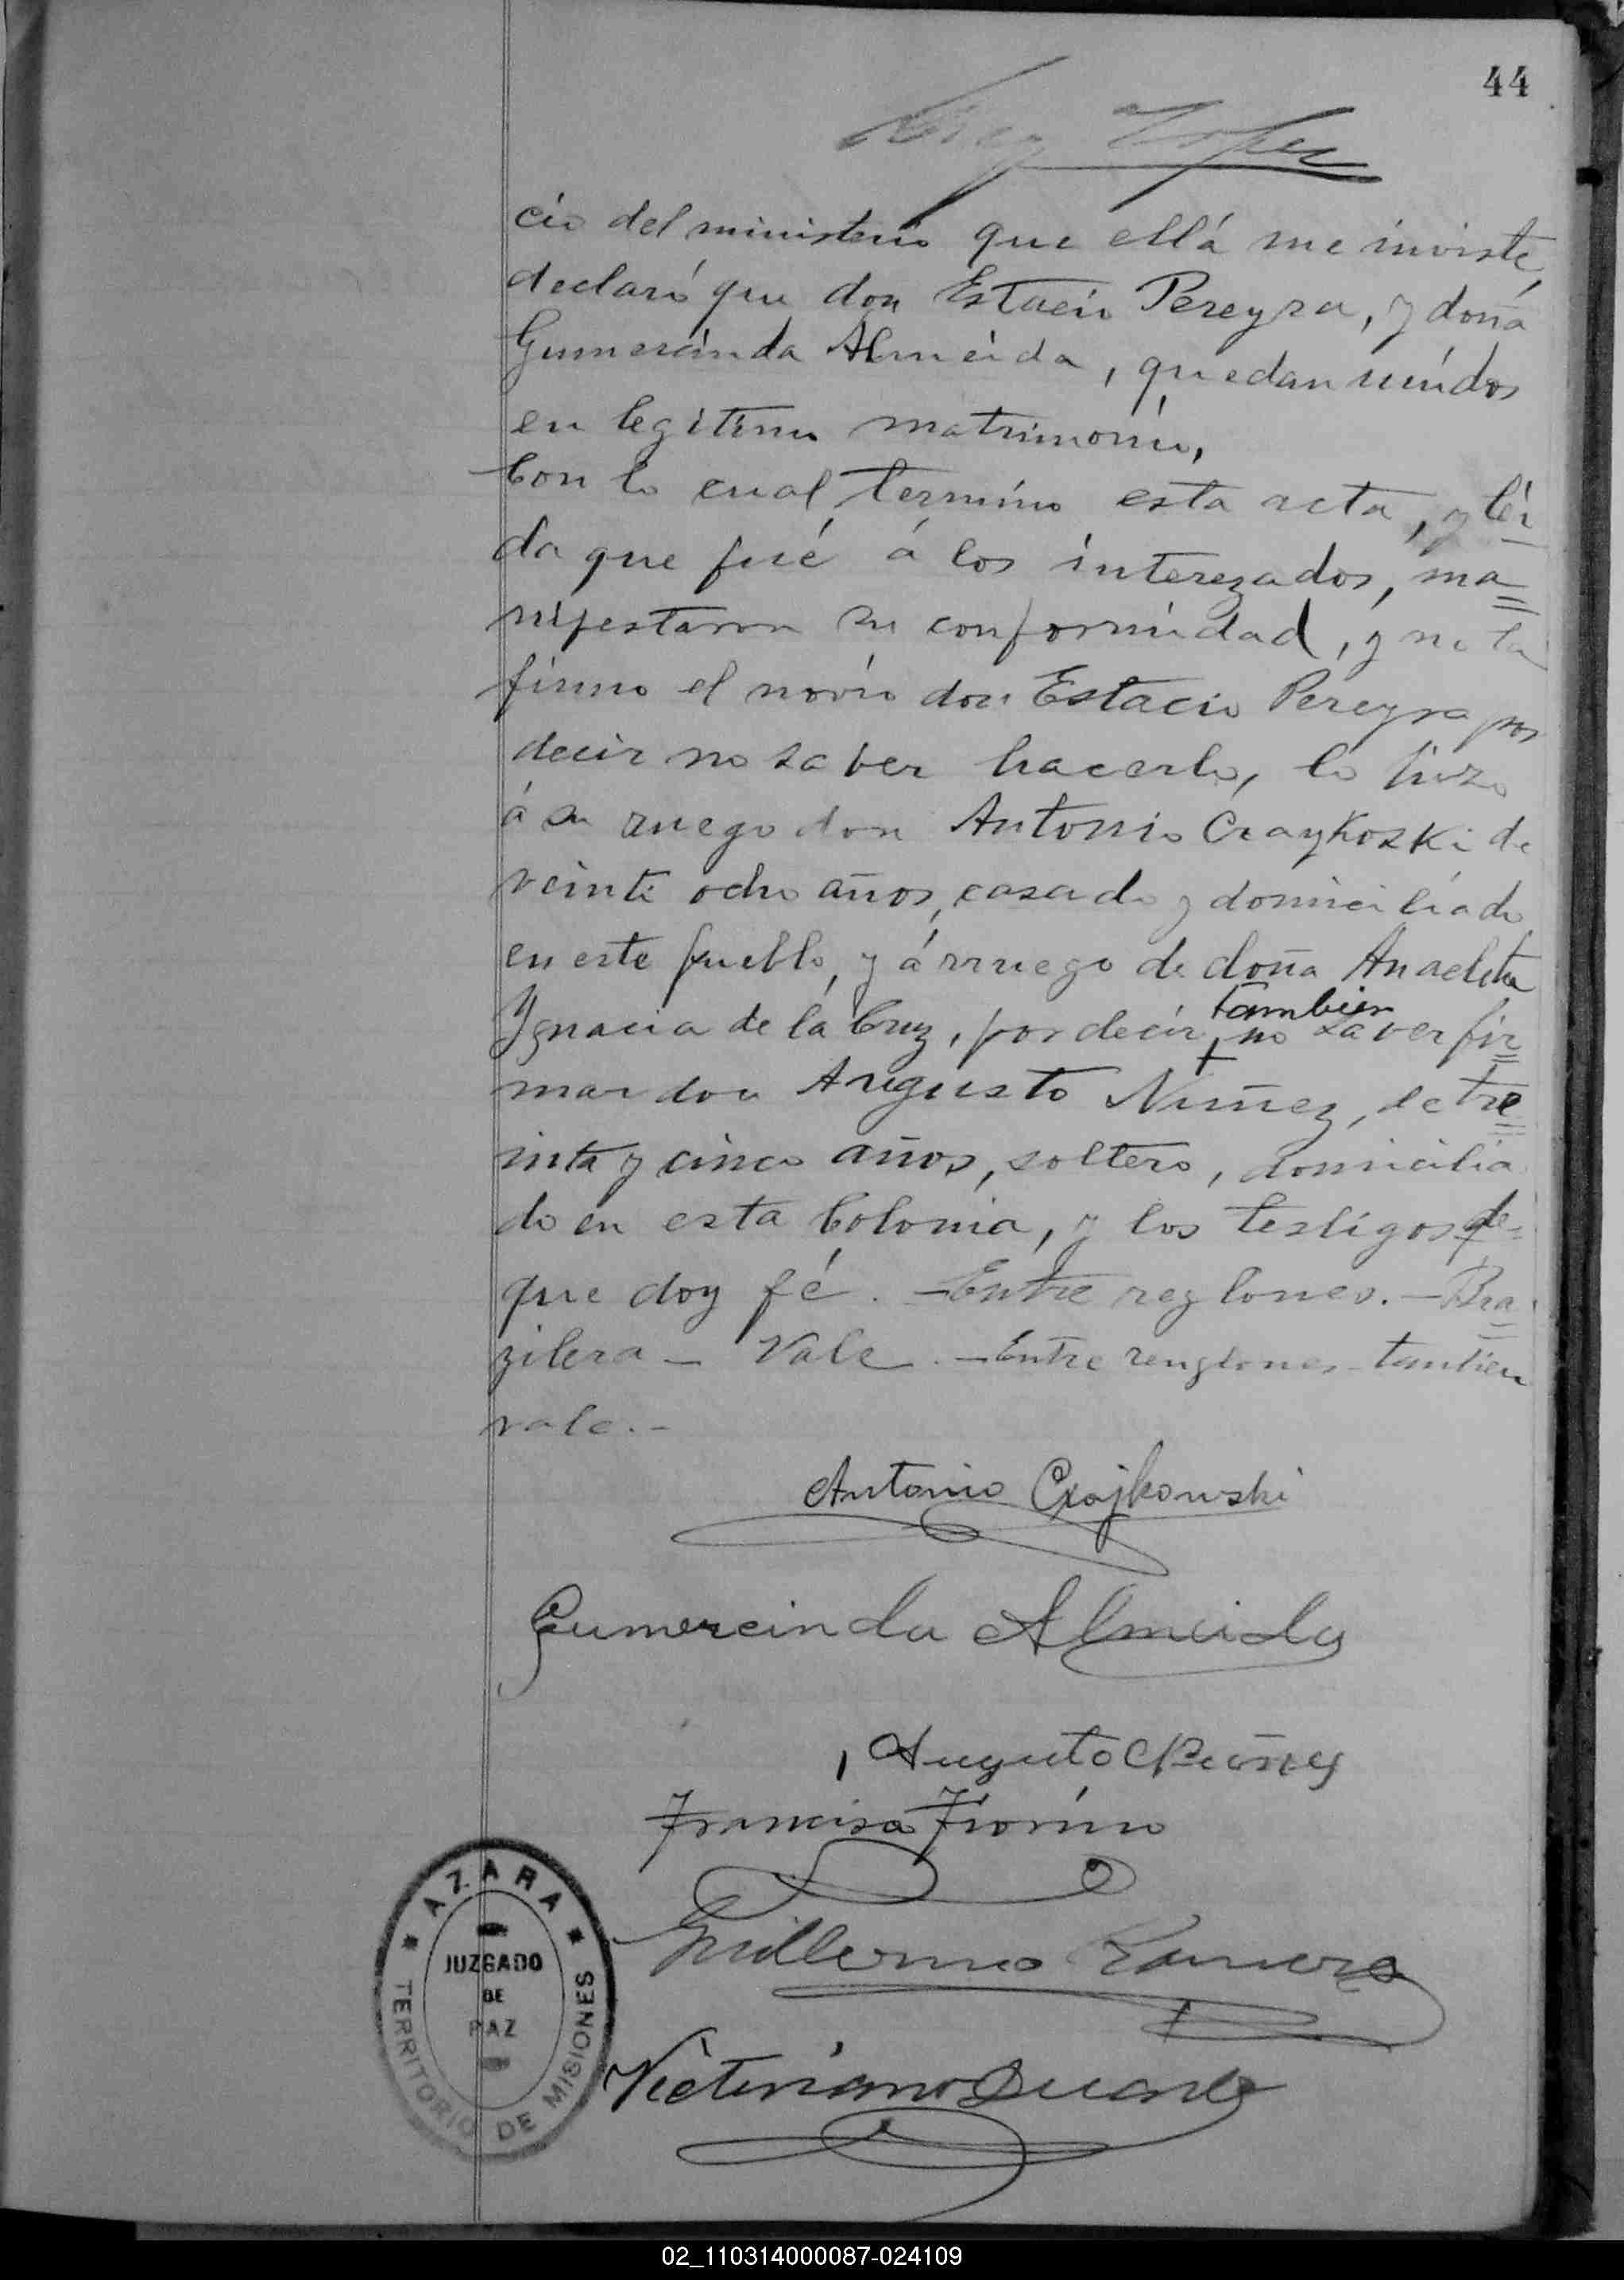 44
cio del ministerio que ellá me inviste,
declaró que don Estacio Pereyra, y doña
Gumercinda Almeida, quedan unidos
en legitimo matrimonio,
Con lo cual termino esta acta, y léi
da que fué á los interezados, ma=
nifestaron su conformidad, y no la
firmo el novio don Estacio Pereyra por
decir no saber hacerlo, lo hizo
á su ruego don Antonio Czaykoski de
veinte ocho años, casado y domiciliado
en este pueblo, y á rruego de doña Anacleta
Ygnacia de la Cruz, por decir, tambien no saver fir=
mar don Augusto Nuñez, de tre=
inta y cinco años, soltero, domicilia
do en esta Colonia, y los testigos de=
que doy fé. – Entre reglones. – Bra=
zilera – Vale. – Entre renglones – tambien
vale. –
Antonio Czajkowski
Gumercinda Almeida
Augusto Nuñez
Francisco Fiorino
Guillermo Romero
Victoriano Duarte
* AZARA *
JUZGADO
DE
PAZ
TERRITORIO DE MISIONES
02_110314000087-024109